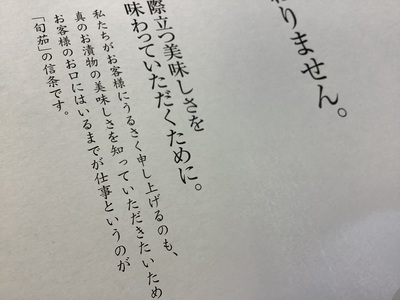 わりません。
際立つ美味しさを
味わっていただくために。
私たちがお客様にうるさく申し上げるのも、
真のお漬物の美味しさを知っていただきたいため
お客様のお口にはいるまでが仕事というのが
「旬茄」の信条です。